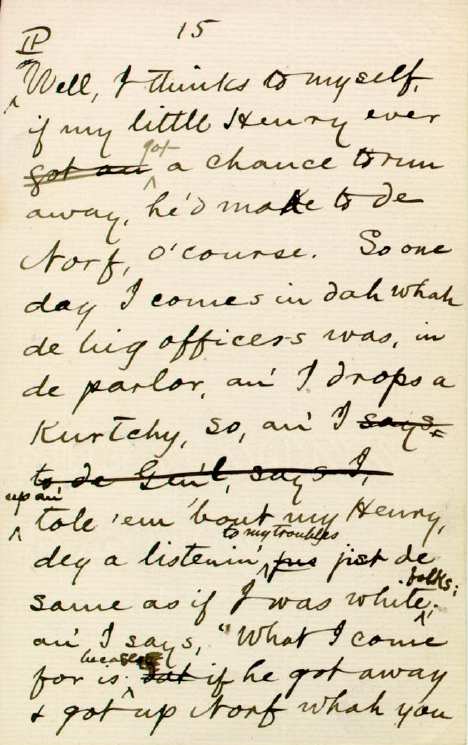 15
¶ Well, I thinks to myself,
if my little Henry ever
got an got a chance to run
away, he'd make to de
Norf, o' course. So one
day I comes in dah whah
de big officers was, in
de parlor, an' I drops a
Kurtchy, so, an' I says,
to de Gen'l, says I,
up an'
tole 'em 'bout my Henry,
to my troubles
dey a listenin' jus jist de
folks;
same as if I was white;
an' I says, "What I come
for is because dat if he got away
& got up Norf whah you